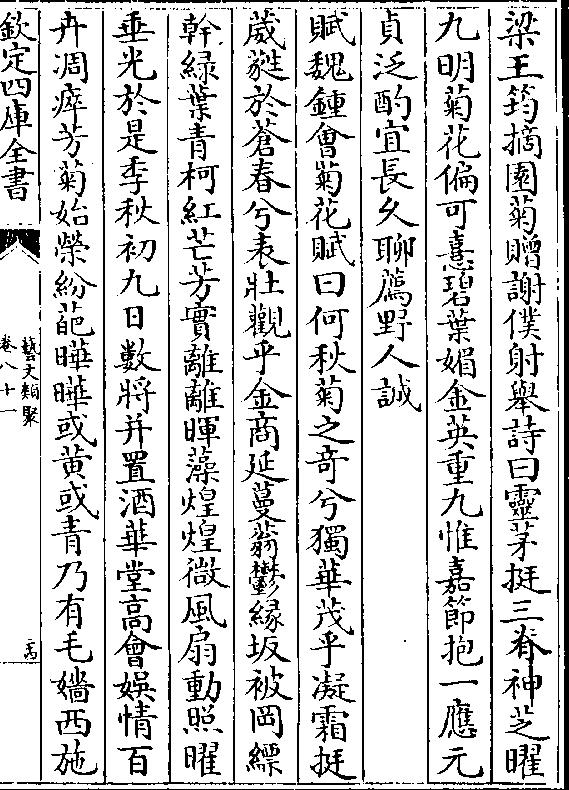 梁王筠摘園菊贈謝僕射舉詩曰靈茅挺三脊神芝曜
九明菊花偏可憙碧葉媚金英重九惟嘉節抱一應元
貞泛酌宜長久聊薦野人誠
賦魏鍾會菊花賦曰何秋菊之竒兮獨華茂乎凝霜挺
葳蕤於蒼春兮表壯觀乎金商延蔓蓊鬱緣坂被岡縹
幹緑葉青柯紅芒芳實離離暉藻煌煌微風扇動照曜
垂光於是季秋初九日數將并置酒華堂高會娛情百
卉凋瘁芳菊始榮紛葩曄曄或黄或青乃有毛嬙西施
欽定四庫全書
藝文類聚
卷八十一